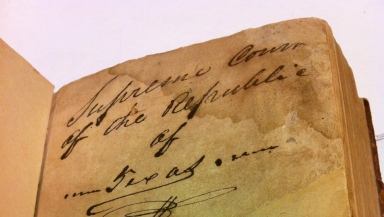 Supreme Cour
of the Republic
of
Texas